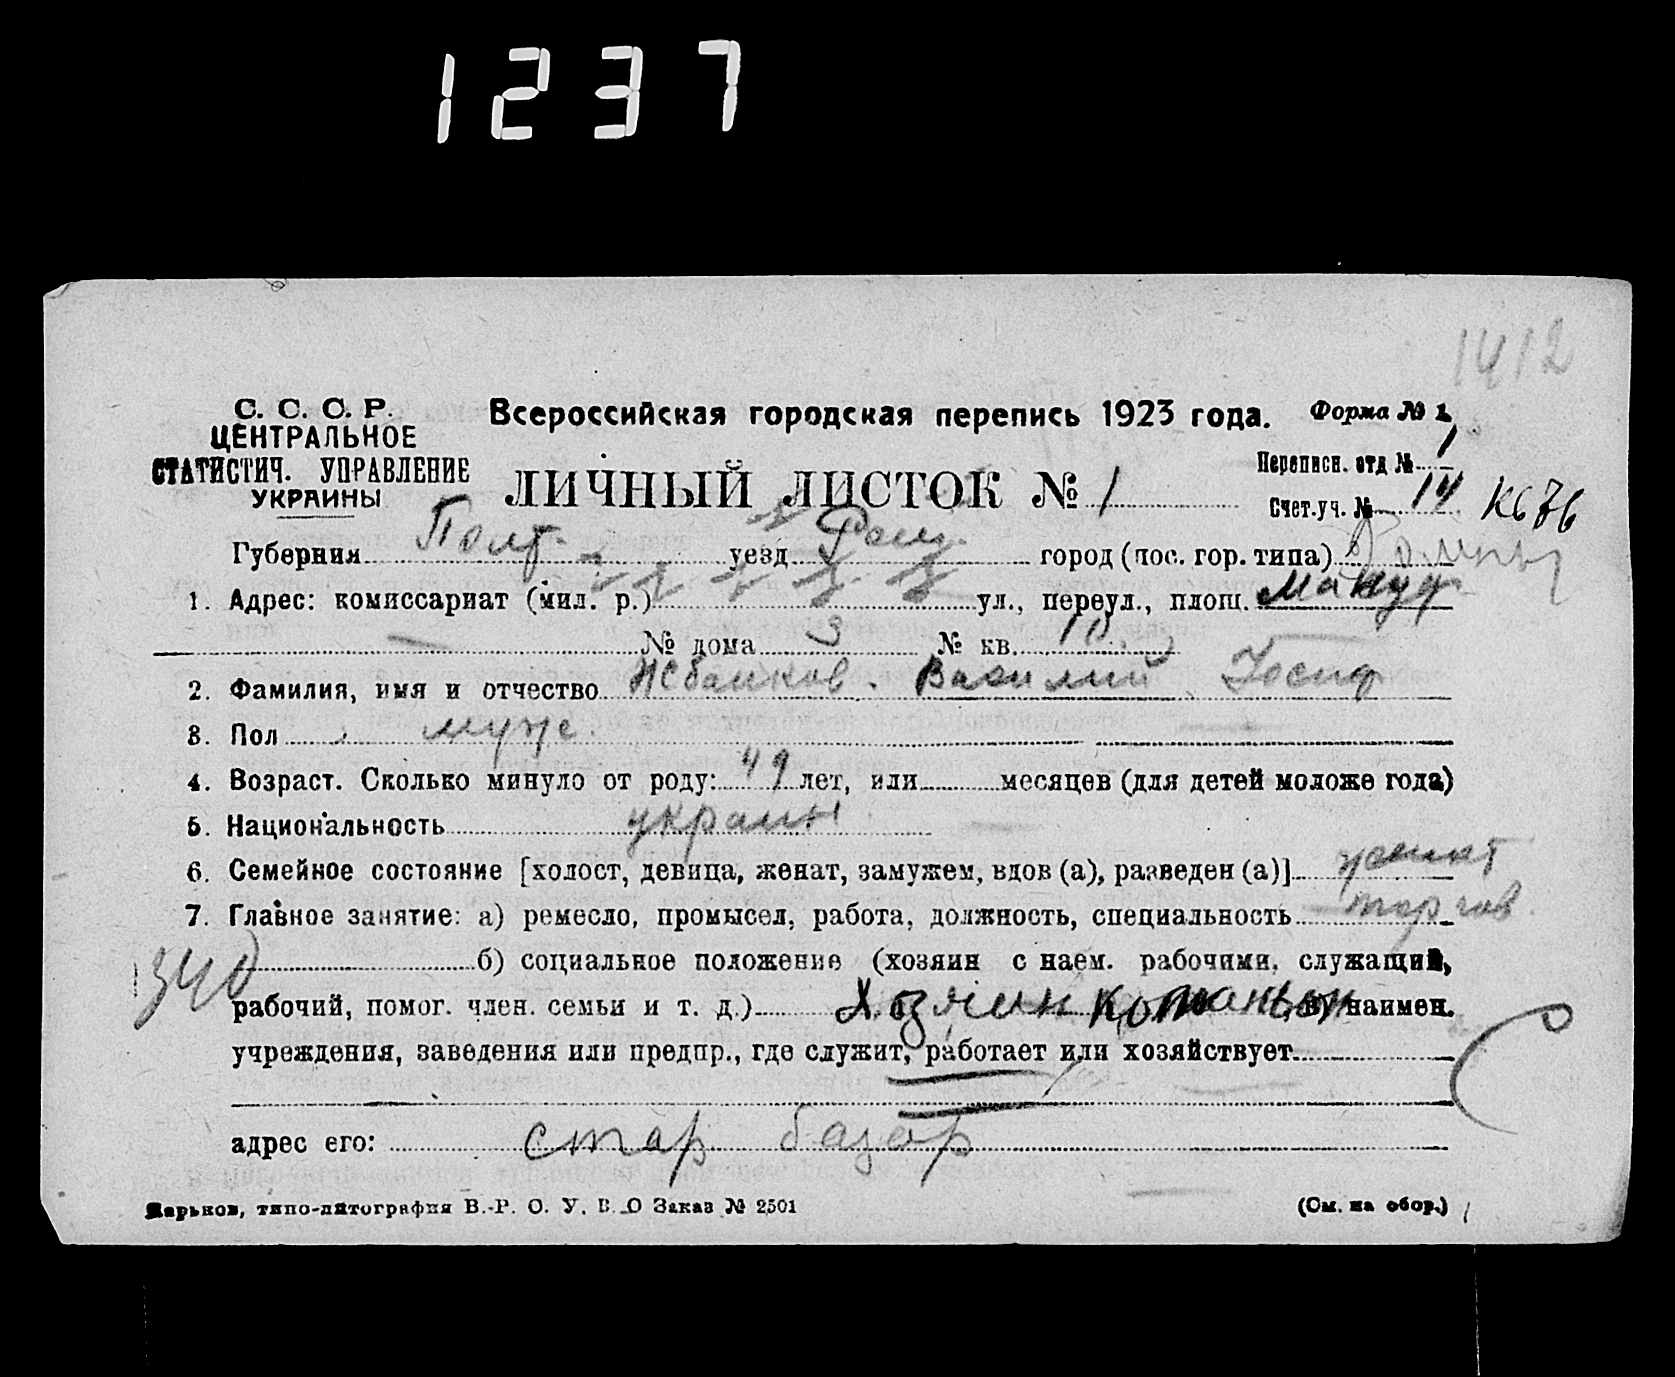 1237
1412
С. С. С. Р. Всероссийская городская перепись 1923 года. Форма № 1
ЦЕНТРАЛЬНОЕ
СТАТИСТИЧ. УПРАВЛЕНИЕ
УКРАИНЫ
ЛИЧНЫЙ ЛИСТОК № 1
Переписн. отд № 1
Счет.-уч. № 14
Губерния Полт. уезд город (пос. гор. типа) Ромны
1. Адрес: комиссариат (мил. р.) ул., переул., площ. Мануф
№ дома 3 № кв.
2. Фамилия, имя и отчество Василий Иосиф
3. Пол муж.
4. Возраст. Сколько минуло от роду: 49 лет, или месяцев (для детей моложе года)
5. Национальность украин
6. Семейное состояние [холост, девица, женат, замужем, вдов (а), разведен (а)] женат
7. Главное занятие: а) ремесло, промысел, работа, должность, специальность торгов.
340 б) социальное положение (хозяин с наем. рабочими, служащий,
рабочий, помог. член. семьи и т. д.) Хозяин компаньон в) наимен.
учреждения, заведения или предпр., где служит, работает или хозяйствует
адрес его: стар базар
Харьков, типо-литография В.-Р. О. У. В. О Заказ № 2501 (См. на обор.)